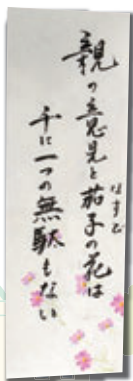 親の意見と茄子の花は
なすび
千に一つの無駄もない